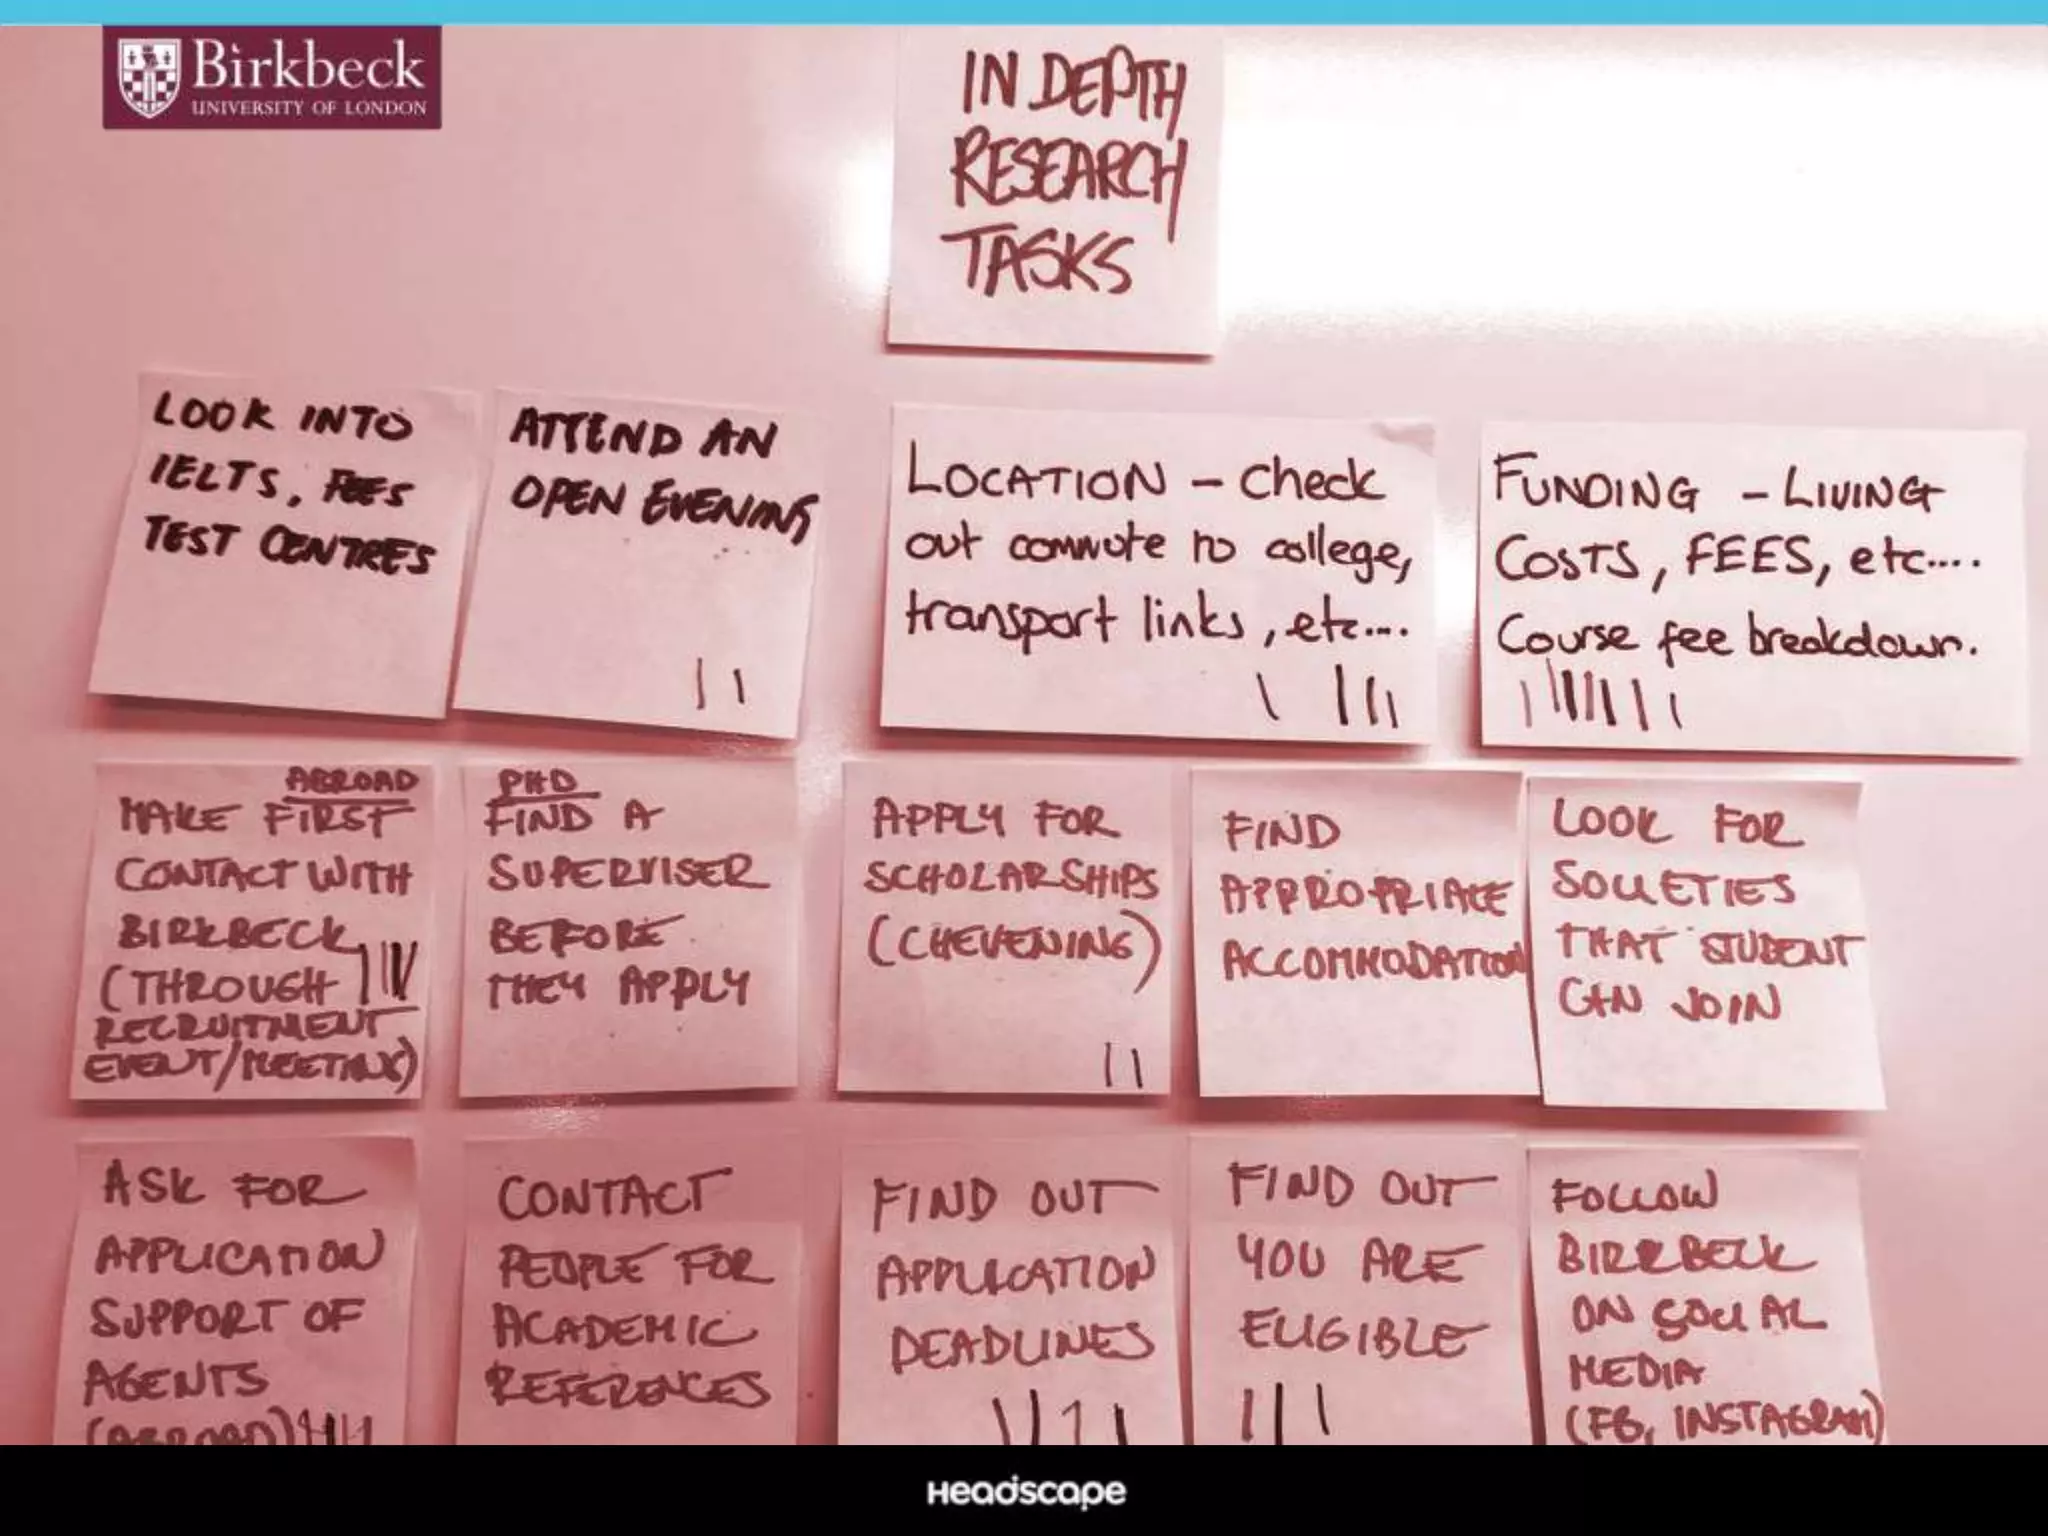 Birkbeck
UNIVERSITY OF LONDON
IN DEPTH
RESEARCH
TASKS
LOOK INTO
IELTS, FEES
TEST CENTRES
ATTEND AN
OPEN EVENING
LOCATION - Check
out commute to college,
transport links, etc....
FUNDING - LIVING
COSTS, FEES, etc....
Course fee breakdown.
ABROAD
MAKE FIRST
CONTACT WITH
BIRKBECK
(THROUGH
RECRUITMENT
EVENT/MEETING)
PHD
FIND A
SUPERVISER
BEFORE
THEY APPLY
APPLY FOR
SCHOLARSHIPS
(CHEVENING)
FIND
APPROPRIATE
ACCOMMODATION
LOOK FOR
SOCIETIES
THAT STUDENT
CAN JOIN
ASK FOR
APPLICATION
SUPPORT OF
AGENTS
(ABROAD)
CONTACT
PEOPLE FOR
ACADEMIC
REFERENCES
FIND OUT
APPLICATION
DEADLINES
FIND OUT
YOU ARE
ELIGIBLE
FOLLOW
BIRKBECK
ON SOCIAL
MEDIA
(FB, INSTAGRAM)
Headscape